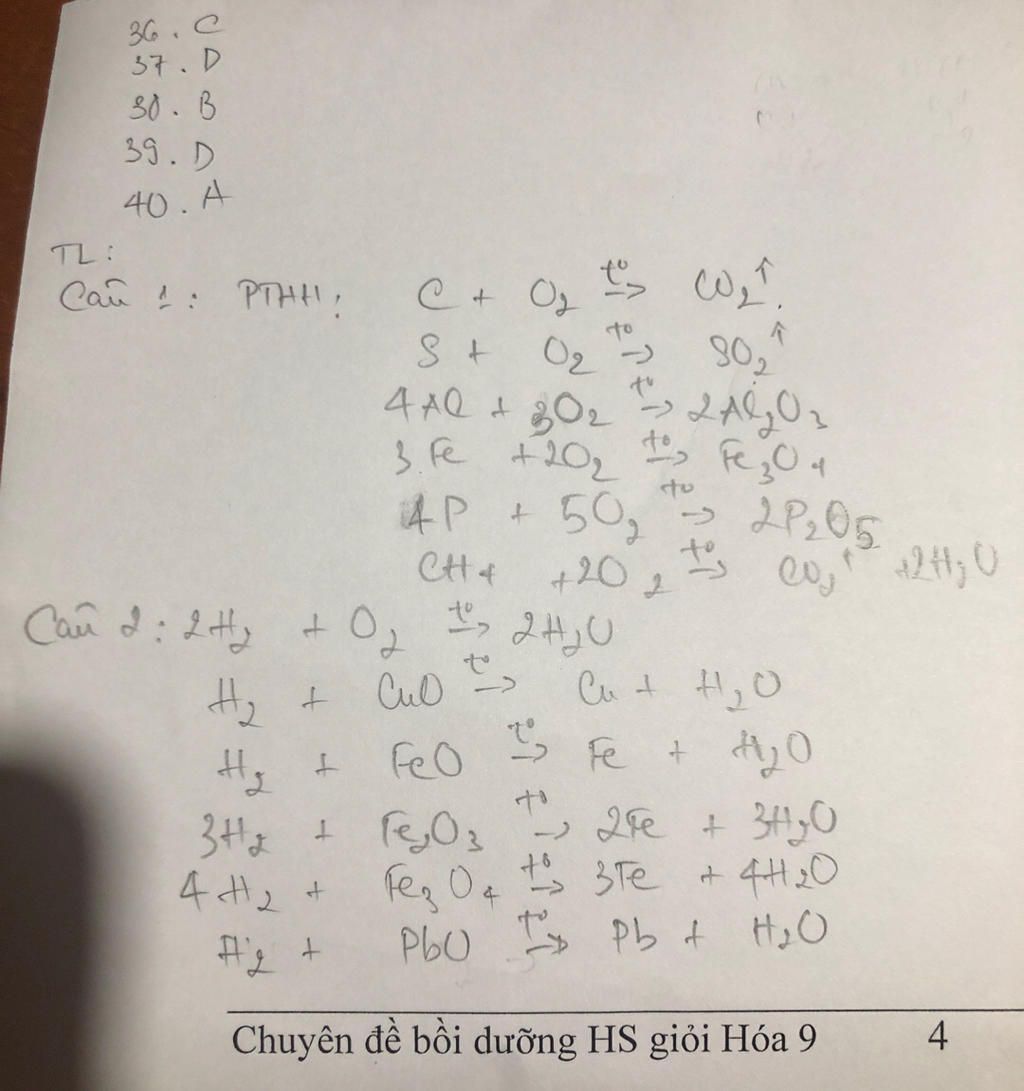 36. C
37. D
38. B
39. D
40. A
TL:
Câu 1: PTHH: C + O₂ t°→ CO₂↑.
S + O₂ t°→ SO₂↑
4Al + 3O₂ t°→ 2Al₂O₃
3Fe + 2O₂ t°→ Fe₃O₄
4P + 5O₂ t°→ 2P₂O₅
CH₄ + 2O₂ t°→ CO₂↑ + 2H₂O
Câu 2: 2H₂ + O₂ t°→ 2H₂O
H₂ + CuO t°→ Cu + H₂O
H₂ + FeO t°→ Fe + H₂O
3H₂ + Fe₂O₃ t°→ 2Fe + 3H₂O
4H₂ + Fe₃O₄ t°→ 3Fe + 4H₂O
H₂ + PbO t°→ Pb + H₂O
Chuyên đề bồi dưỡng HS giỏi Hóa 9 4